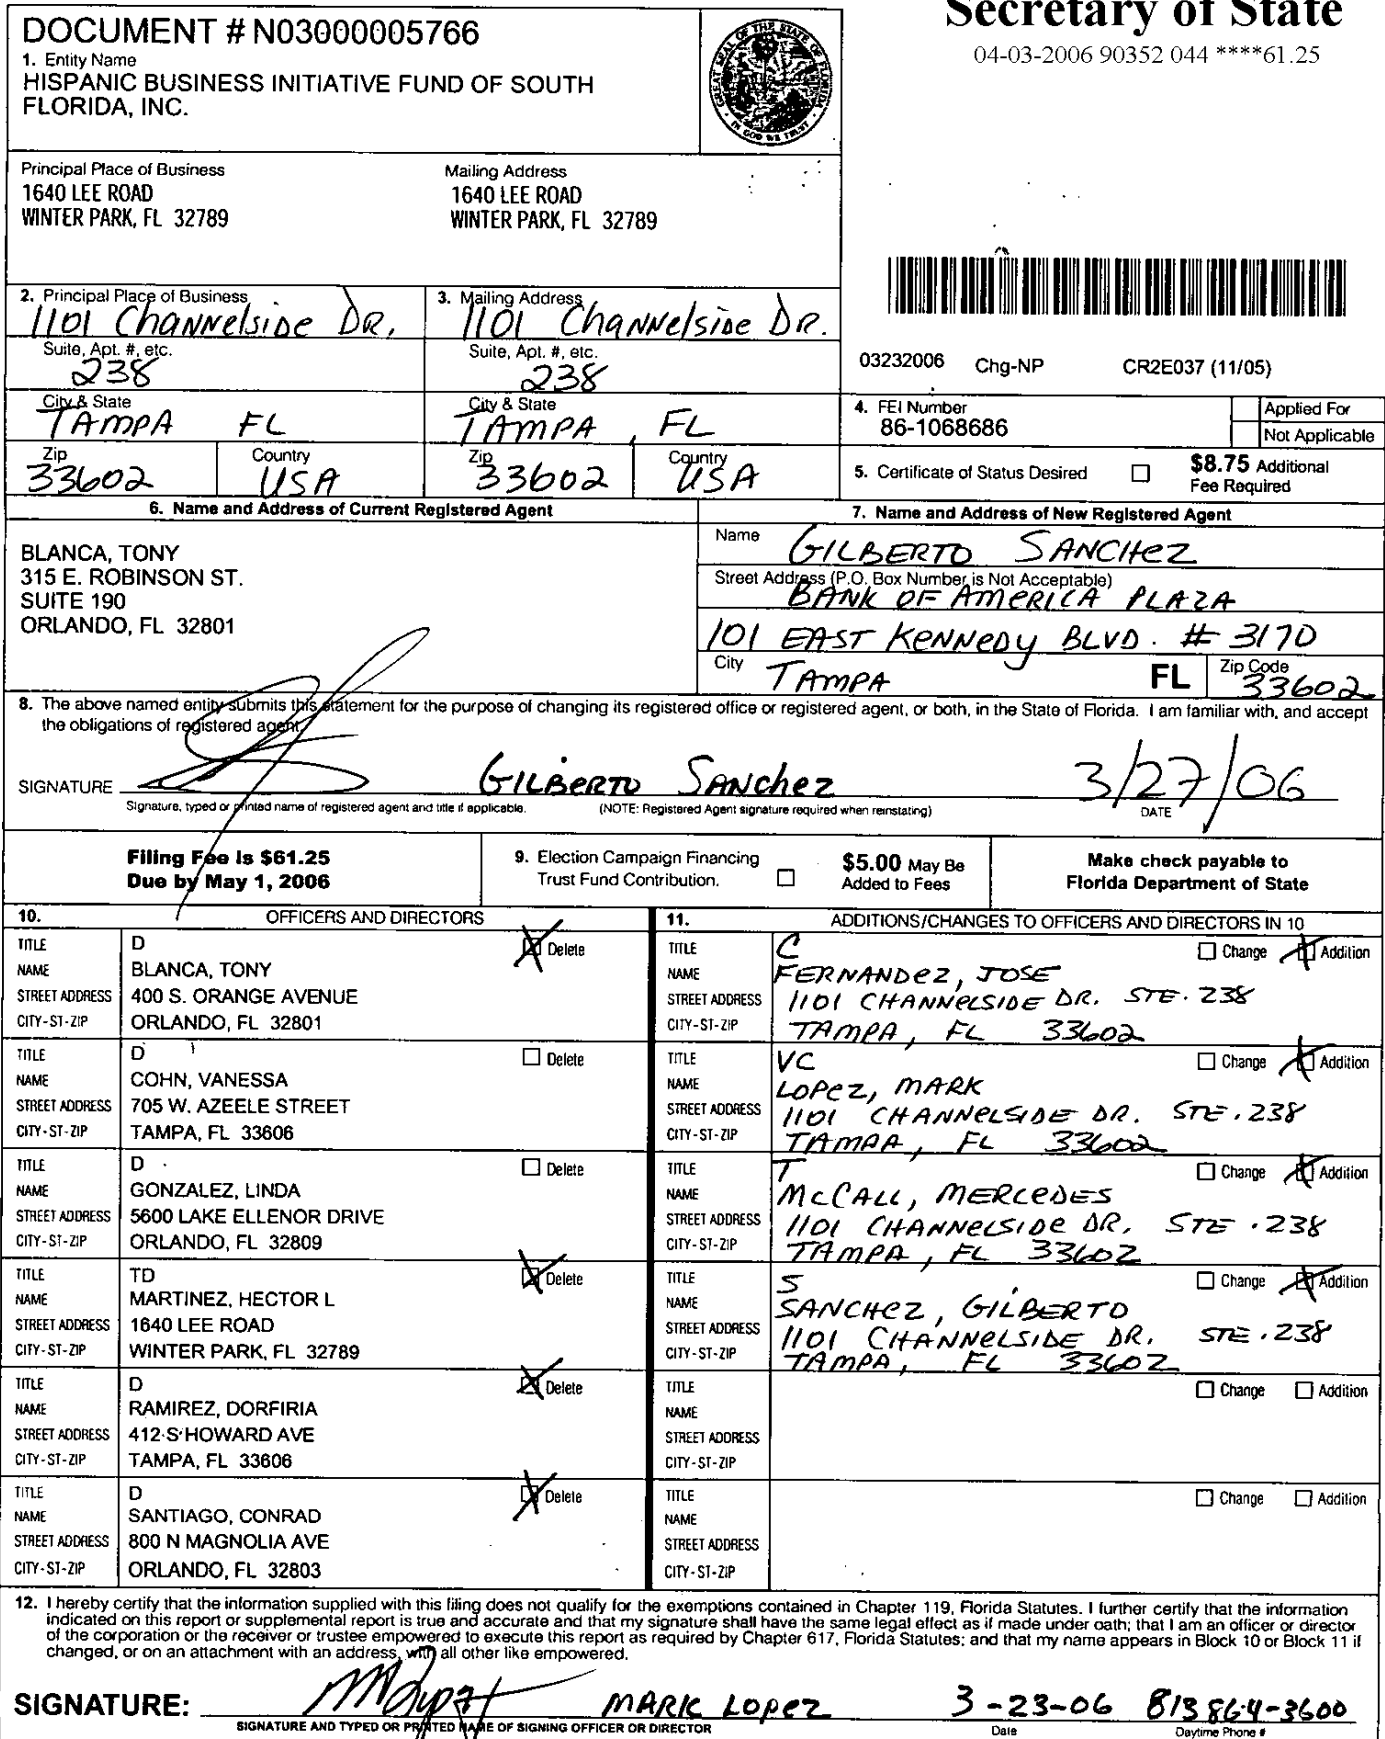 Secretary of State
04-03-2006 90352 044 ****61.25
DOCUMENT # N03000005766
1. Entity Name
HISPANIC BUSINESS INITIATIVE FUND OF SOUTH
FLORIDA, INC.
GREAT SEAL OF THE STATE OF FLORIDA
IN GOD WE TRUST
Principal Place of Business
1640 LEE ROAD
WINTER PARK, FL 32789
Mailing Address
1640 LEE ROAD
WINTER PARK, FL 32789
2. Principal Place of Business
1101 Channelside DR.
3. Mailing Address
1101 Channelside DR.
Suite, Apt. #, etc.
238
Suite, Apt. #, etc.
238
City & State
TAMPA FL
City & State
TAMPA, FL
Zip
33602
Country
USA
Zip
33602
Country
USA
03232006 Chg-NP CR2E037 (11/05)
4. FEI Number
86-1068686
Applied For
Not Applicable
5. Certificate of Status Desired
$8.75 Additional
Fee Required
6. Name and Address of Current Registered Agent
BLANCA, TONY
315 E. ROBINSON ST.
SUITE 190
ORLANDO, FL 32801
7. Name and Address of New Registered Agent
Name
GILBERTO SANCHEZ
Street Address (P.O. Box Number is Not Acceptable)
BANK OF AMERICA PLAZA
101 EAST KENNEDY BLVD. # 3170
City TAMPA FL Zip Code 33602
8. The above named entity submits this statement for the purpose of changing its registered office or registered agent, or both, in the State of Florida. I am familiar with, and accept
the obligations of registered agent.
SIGNATURE GILBERTO SANCHEZ 3/27/06
Signature, typed or printed name of registered agent and title if applicable. (NOTE: Registered Agent signature required when reinstating) DATE
Filing Fee is $61.25
Due by May 1, 2006
9. Election Campaign Financing
Trust Fund Contribution.
$5.00 May Be
Added to Fees
Make check payable to
Florida Department of State
10. OFFICERS AND DIRECTORS
TITLE D Delete
NAME BLANCA, TONY
STREET ADDRESS 400 S. ORANGE AVENUE
CITY-ST-ZIP ORLANDO, FL 32801
TITLE D Delete
NAME COHN, VANESSA
STREET ADDRESS 705 W. AZEELE STREET
CITY-ST-ZIP TAMPA, FL 33606
TITLE D Delete
NAME GONZALEZ, LINDA
STREET ADDRESS 5600 LAKE ELLENOR DRIVE
CITY-ST-ZIP ORLANDO, FL 32809
TITLE TD Delete
NAME MARTINEZ, HECTOR L
STREET ADDRESS 1640 LEE ROAD
CITY-ST-ZIP WINTER PARK, FL 32789
TITLE D Delete
NAME RAMIREZ, DORFIRIA
STREET ADDRESS 412 S HOWARD AVE
CITY-ST-ZIP TAMPA, FL 33606
TITLE D Delete
NAME SANTIAGO, CONRAD
STREET ADDRESS 800 N MAGNOLIA AVE
CITY-ST-ZIP ORLANDO, FL 32803
11. ADDITIONS/CHANGES TO OFFICERS AND DIRECTORS IN 10
TITLE C Change Addition
NAME FERNANDEZ, JOSE
STREET ADDRESS 1101 CHANNELSIDE DR. STE. 238
CITY-ST-ZIP TAMPA, FL 33602
TITLE VC Change Addition
NAME LOPEZ, MARK
STREET ADDRESS 1101 CHANNELSIDE DR. STE. 238
CITY-ST-ZIP TAMPA, FL 33602
TITLE T Change Addition
NAME McCALL, MERCEDES
STREET ADDRESS 1101 CHANNELSIDE DR. STE. 238
CITY-ST-ZIP TAMPA, FL 33602
TITLE S Change Addition
NAME SANCHEZ, GILBERTO
STREET ADDRESS 1101 CHANNELSIDE DR. STE. 238
CITY-ST-ZIP TAMPA, FL 33602
TITLE Change Addition
NAME
STREET ADDRESS
CITY-ST-ZIP
TITLE Change Addition
NAME
STREET ADDRESS
CITY-ST-ZIP
12. I hereby certify that the information supplied with this filing does not qualify for the exemptions contained in Chapter 119, Florida Statutes. I further certify that the information
indicated on this report or supplemental report is true and accurate and that my signature shall have the same legal effect as if made under oath; that I am an officer or director
of the corporation or the receiver or trustee empowered to execute this report as required by Chapter 617, Florida Statutes; and that my name appears in Block 10 or Block 11 if
changed, or on an attachment with an address, with all other like empowered.
SIGNATURE: MARK LOPEZ 3-23-06 813 864-3600
SIGNATURE AND TYPED OR PRINTED NAME OF SIGNING OFFICER OR DIRECTOR Date Daytime Phone #